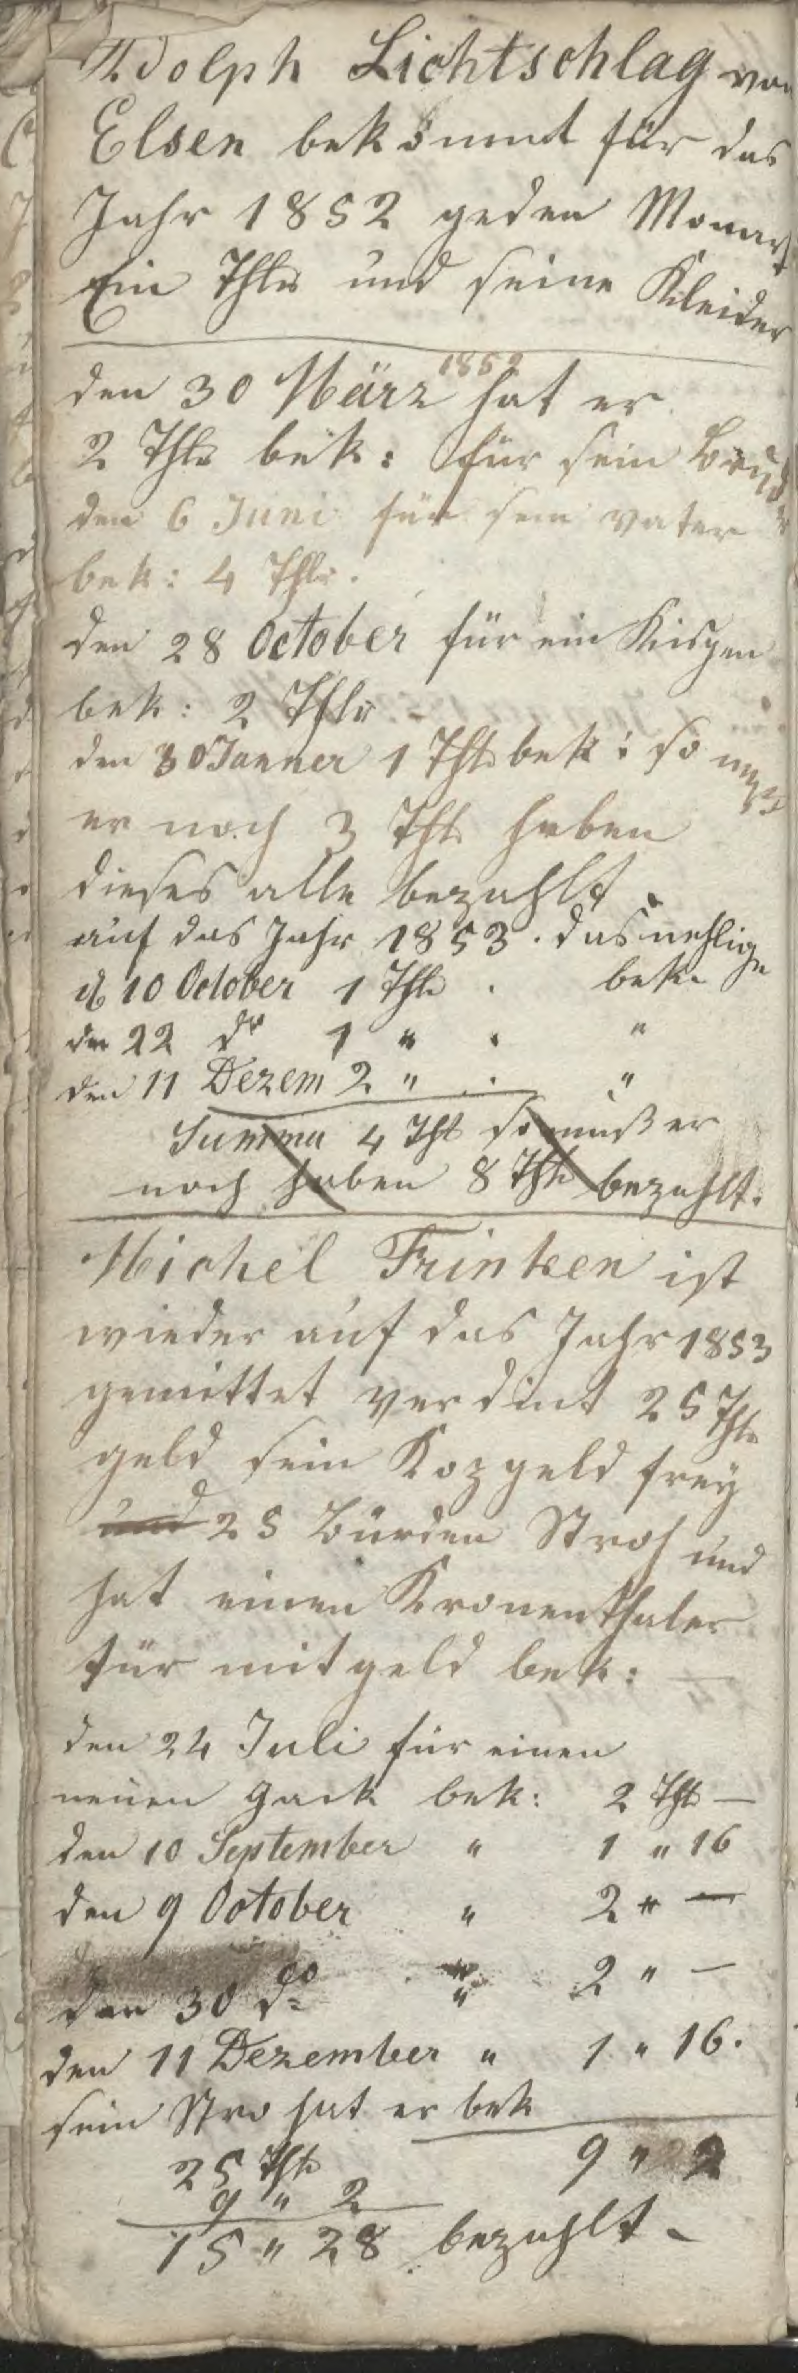 Adolph Lichtschlag von
Elsen bekömmt für das
Jahr 1852 geden Monat
Ein Thlr und seine Kleider
1852
den 30 März hat er
2 Thlr bek: für sein Bruder
den 6 Juni für sein vater
bek: 4 Thlr.
den 28 October für ein
bek: 2 Thlr –
den 30 Janner 1 Thlr bek: so muß
er noch 3 Thlr haben
dieses alle bezahlt.
auf das Jahr 1853. das
d 10 October 1 Thlr . bek.
den 22 do 1 " . "
den 11 Dezem 2 " . "
Summa 4 Thlr so muß er
noch haben 8 Thlr bezahlt.
Michel Frinken ist
wieder auf das Jahr 1853
gemittet verdint 25 Thlr
geld sein Kozgeld frey
und 25 Bürden Stroh und
hat einen Kronenthaler
für mitgeld bek: —
den 24 Juli für einen
neuen gack bek: 2 Thlr —
den 10 September " 1 " 16
den 9 October " 2 " —
den 30 do " 2 " —
den 11 Dezember " 1 " 16.
sein Stro hat er bek
25 Thlr 9 " 2
9 " 2
15 " 28 bezahlt –